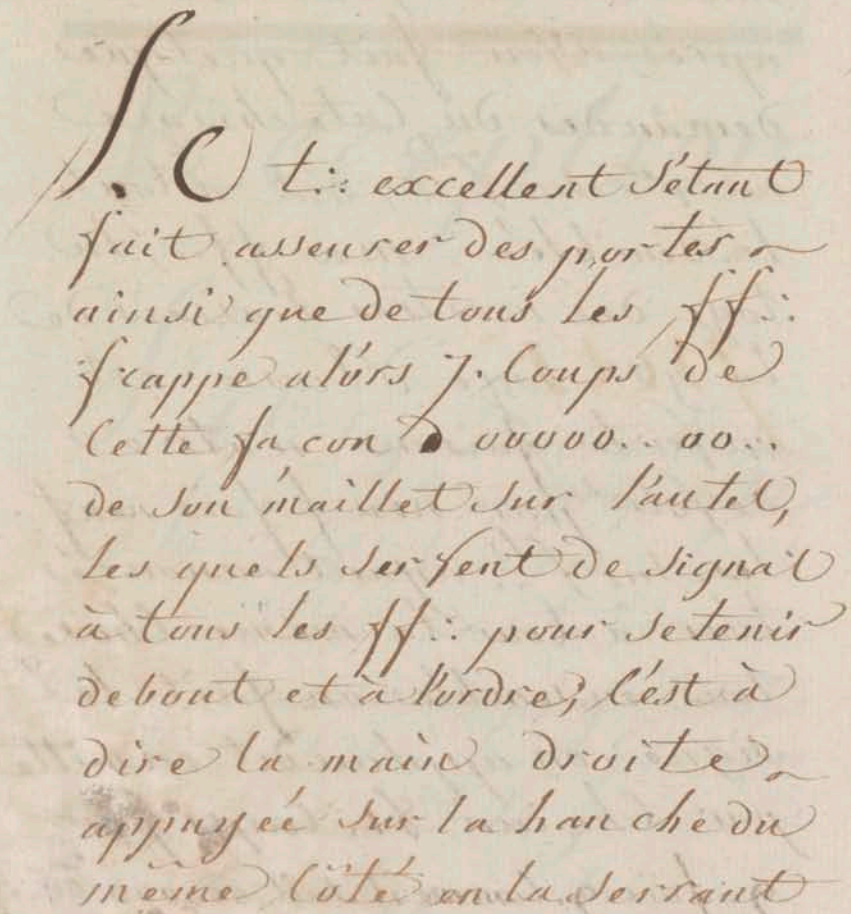 Le t∴ excellent s'étant
fait asseurer des portes
ainsi que de tous les ff∴
frappe alórs 7. Coups de
Cette façon o ooooo.. oo..
de son maillet sur l'autel,
les quels servent de signal
à tous les ff∴ pour se tenir
debout et à l'ordre; C'est à
dire la main droite
appuyéé sur la hanche du
même Côté en la serrant